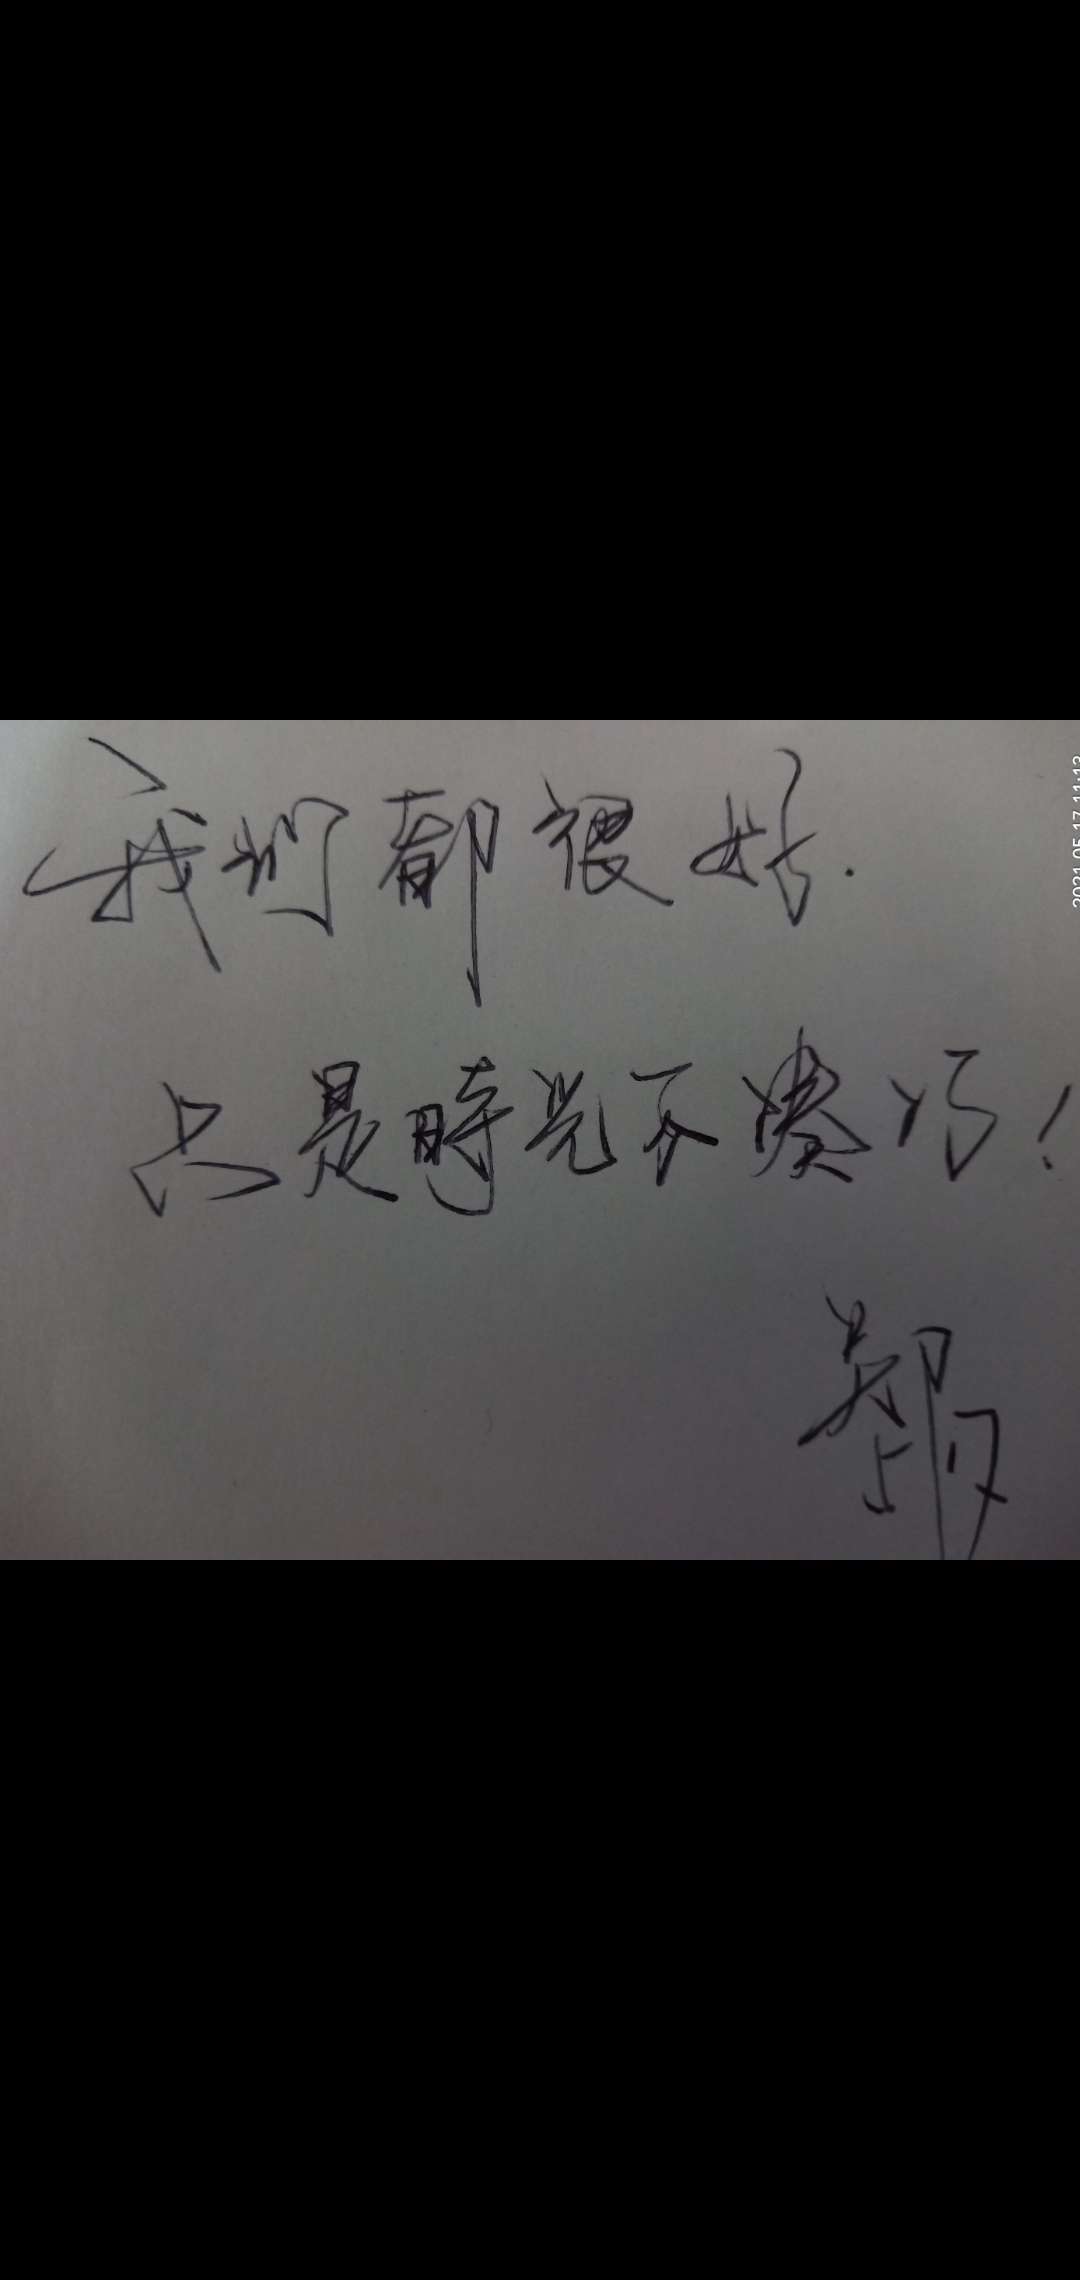 我们都很好.
只是時光不凑巧!
郑
2021.05.17 11:13